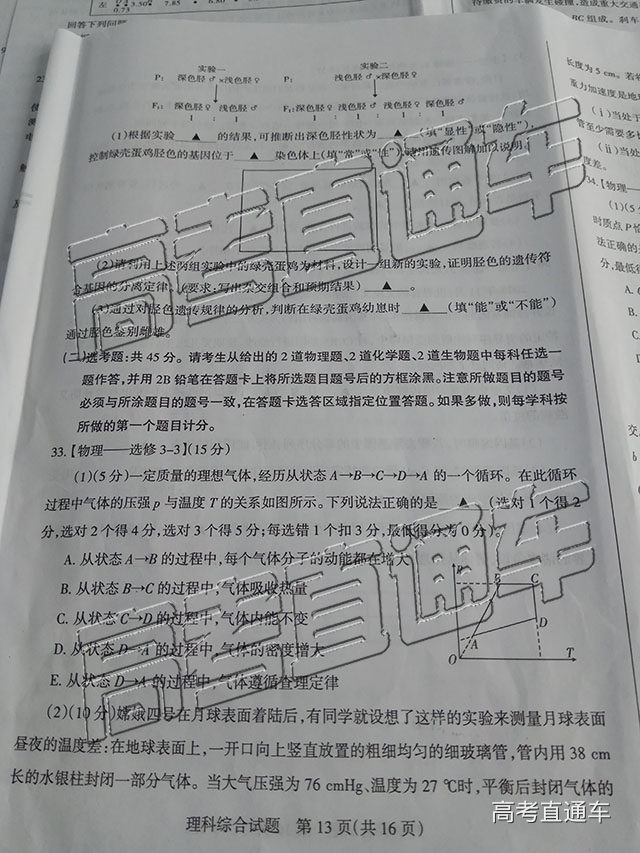 左 0.73 3.50 7.85 6.50
回答下列问
BC 组成。刹车
实验一 实验二
P: 深色胫♂×浅色胫♀ P: 浅色胫♂×深色胫♀
F₁: 深色胫♂ 浅色胫♀ F₁: 深色胫♂ 浅色胫♂ 浅色胫♀ 深色胫♀
1 : 1 1 : 1 : 1 : 1
(1)根据实验 ▲ 的结果,可推断出深色胫性状为 ▲ (填“显性”或“隐性”),
控制绿壳蛋鸡胫色的基因位于 ▲ 染色体上(填“常”或“性”),请用遗传图解加以说明。
(2)请利用上述两组实验中的绿壳蛋鸡为材料,设计一组新的实验,证明胫色的遗传符
合基因的分离定律。(要求:写出杂交组合和预期结果) ▲ 。
(3)通过对胫色遗传规律的分析,判断在绿壳蛋鸡幼崽时 ▲ (填“能”或“不能”)
通过胫色鉴别雌雄。
(二)选考题:共 45 分。请考生从给出的 2 道物理题、2 道化学题、2 道生物题中每科任选一
题作答,并用 2B 铅笔在答题卡上将所选题目题号后的方框涂黑。注意所做题目的题号
必须与所涂题目的题号一致,在答题卡选答区域指定位置答题。如果多做,则每学科按
所做的第一个题目计分。
33.【物理——选修 3-3】(15 分)
(1)(5 分)一定质量的理想气体,经历从状态 A→B→C→D→A 的一个循环。在此循环
过程中气体的压强 p 与温度 T 的关系如图所示。下列说法正确的是 ▲ (选对 1 个得 2
分,选对 2 个得 4 分,选对 3 个得 5 分;每选错 1 个扣 3 分,最低得分为 0 分)。
A. 从状态 A→B 的过程中,每个气体分子的动能都在增大
B. 从状态 B→C 的过程中,气体吸收热量
C. 从状态 C→D 的过程中,气体内能不变
D. 从状态 D→A 的过程中,气体的密度增大
E. 从状态 D→A 的过程中,气体遵循查理定律
p B C
D
A
O T
(2)(10 分)嫦娥四号在月球表面着陆后,有同学就设想了这样的实验来测量月球表面
昼夜的温度差:在地球表面上,一开口向上竖直放置的粗细均匀的细玻璃管,管内用 38 cm
长的水银柱封闭一部分气体。当大气压强为 76 cmHg、温度为 27 ℃时,平衡后封闭气体的
理科综合试题 第 13 页(共 16 页)
长度为 5 cm。若
重力加速度是地
(ⅰ)当处于
管至少需要多长
(ⅱ)当处
度差。
34.【物理一
(1)(5
时质点 P 恰
法正确的
分,最低得
高考直通车
高考直通车
高考直通车